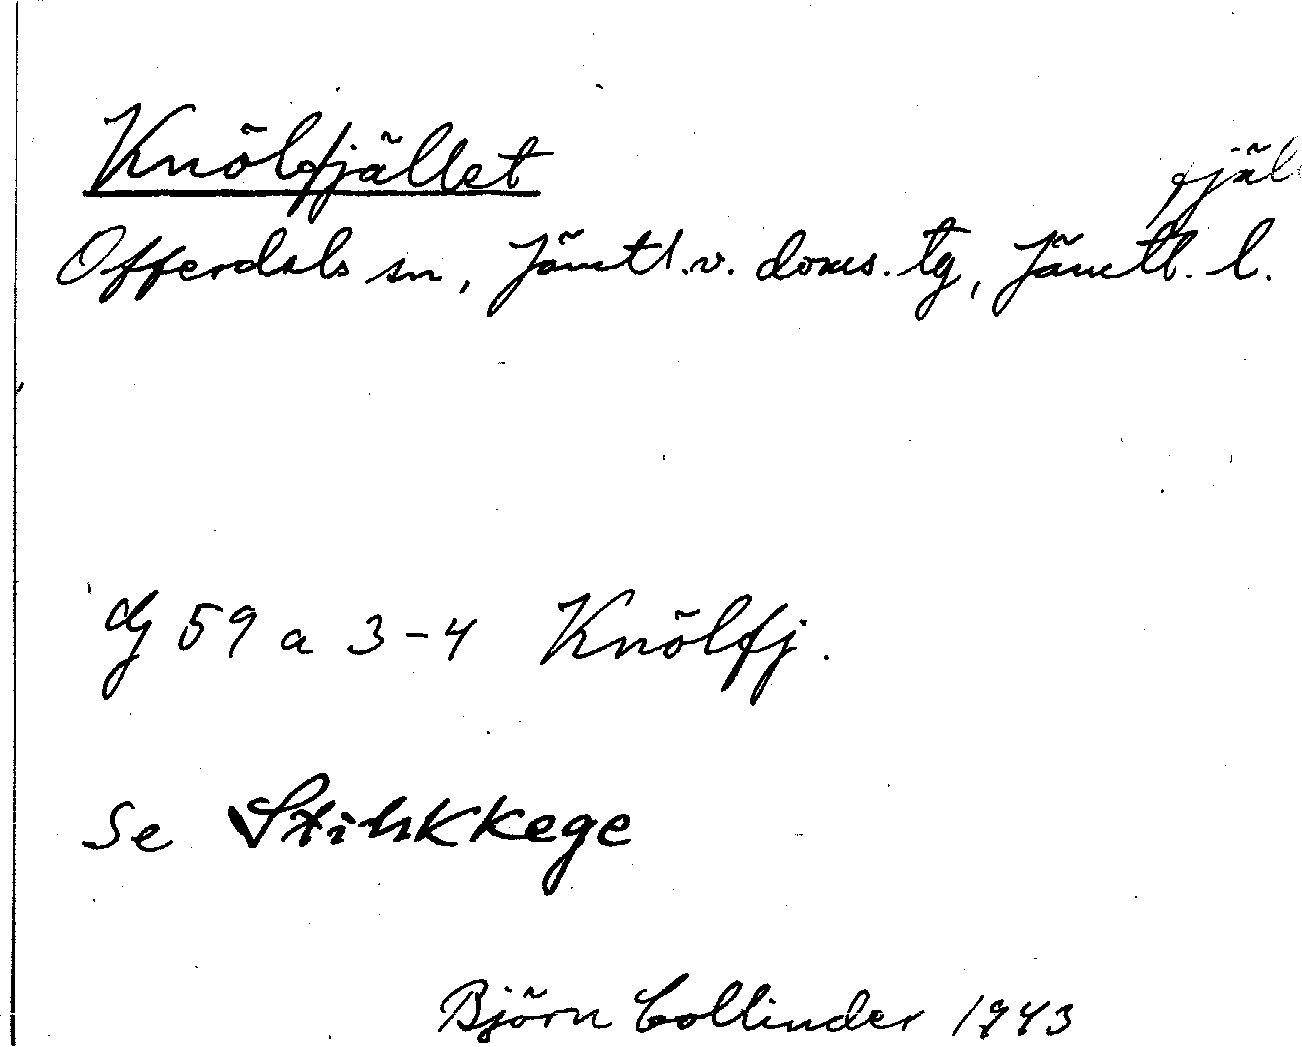 Knölfjället fjäl
Offerdals sn, Jämtl.v. doms. tg, Jämtl. l.
dg 59 a 3-4 Knölfj.
Se
Björn Collinder 1943